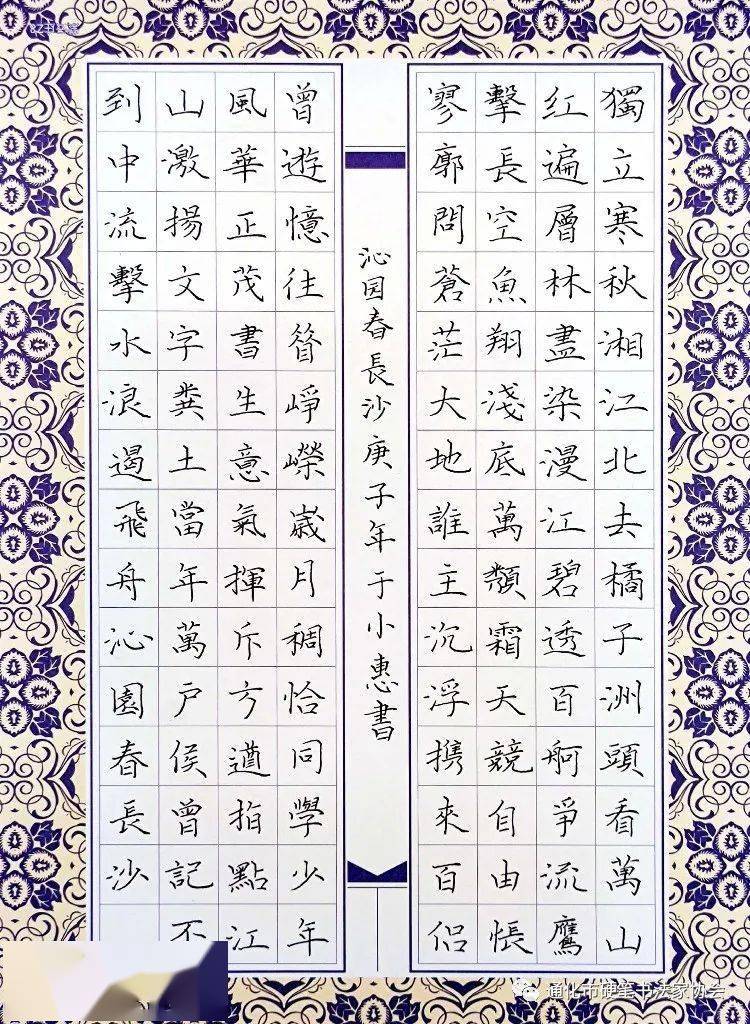 獨立寒秋湘江北去橘子洲頭看萬山
红遍層林盡染漫江碧透百舸爭流鷹
擊長空魚翔淺底萬類霜天競自由悵
寥廓問蒼茫大地誰主沉浮携來百侣
沁园春長沙庚子年于小惠書
曾遊憶往昔崢嶸歲月稠恰同學少年
風華正茂書生意氣揮斥方遒指點江
山激揚文字糞土當年萬户侯曾記不
到中流擊水浪遏飛舟沁園春長沙
通化市硬笔书法家协会